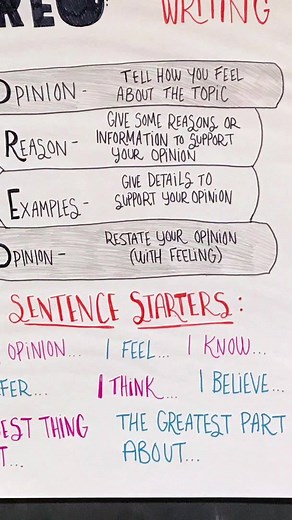 REO WRITING
OPINION - TELL HOW YOU FEEL
ABOUT THE TOPIC
REASON - GIVE SOME REASONS OR
INFORMATION TO SUPPORT
YOUR OPINION
EXAMPLES - GIVE DETAILS TO
SUPPORT YOUR OPINION
OPINION - RESTATE YOUR OPINION
(WITH FEELING)
SENTENCE STARTERS:
OPINION... I FEEL... I KNOW...
FER... I THINK... I BELIEVE...
EST THING THE GREATEST PART
T... ABOUT...